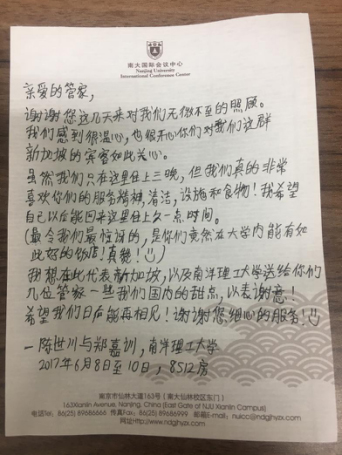 南大国际会议中心
Nanjing University
International Conference Center
亲爱的管家，
谢谢您这几天来对我们无微不至的照顾。
我们感到很温心，也很开心你们对我们这群
新加坡的宾客如此关心。
虽然我们只在这里住上三晚，但我们真的非常
喜欢你们的服务精神，清洁，设施和食物！我希望
自己以后能回来这里住上久一点时间。
(最令我们最惊讶的，是你们竟然在大学内能有如
此好的饭店！真貌！☺)
我想在此代表新加坡，以及南洋理工大学送给你们
几位管家一些我们国内的甜点，以表谢意！
希望我们日后能再相见！谢谢您细心的服务！☺
— 陈世川与郑嘉训，南洋理工大学
2017年6月8日至10日，8512房
南京市仙林大道163号(南大仙林校区东门)
163Xianlin Avenue, Nanjing, China (East Gate of NJU Xianlin Campus)
电话No: 86(25) 89686666 传真Fax: 86(25) 89686999 邮箱E-mail: nuicc@ndghjzx.com
网址Http://www.ndghjzx.com